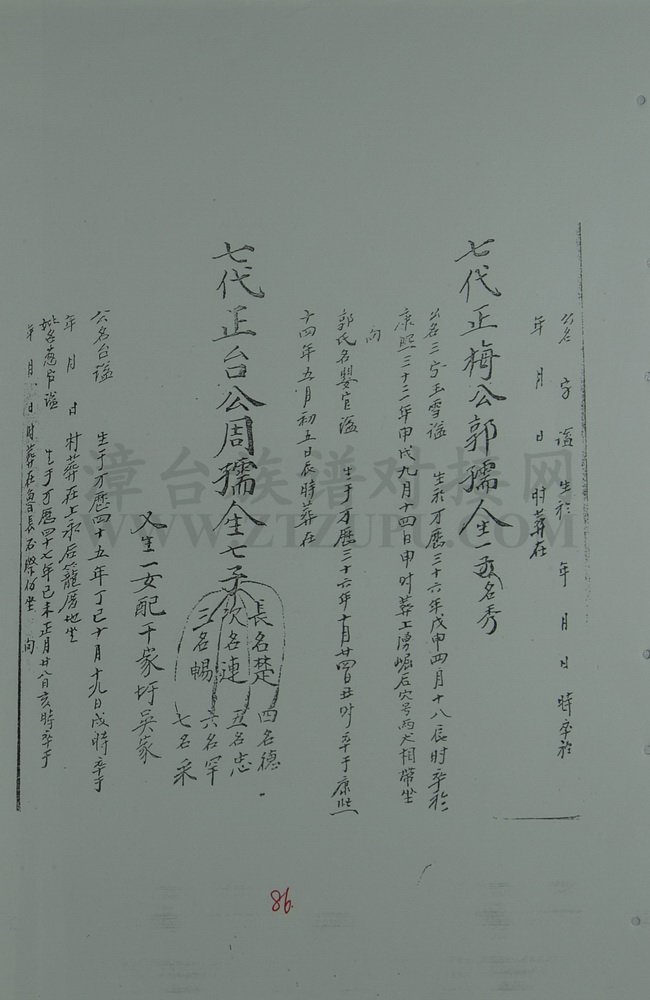 公名 字 謚 生於 年 月 日 時卒於
年 月 日 时葬在
七代正梅公郭孺仝生一子名秀
公名三字玉雪謚 生於万歷三十六年戊申四月十八辰时卒於
康熙三十三年甲戌九月十四日申时葬上湧崛后穴号两犬相帶坐
向
郭氏名嬰官謚 生于万歷三十六年十月廿四日丑时卒于康熙
十四年五月初五日辰時葬在
七代正台公周孺仝生七子
長名楚 四名德
次名連 五名忠
三名暢 六名罕
七名采
又生一女配干家圩吳家
公名台謚 生于万歷四十五年丁巳十月十九日戌時卒于
年 月 日 时葬在上承后籠厝地坐
妣名惹官謚 生于万歷四十七年己未正月廿八日亥時卒于
年 月 日时葬在 長石 坐 向
漳台族谱对接网
WWW.ZTZUPU.COM
86